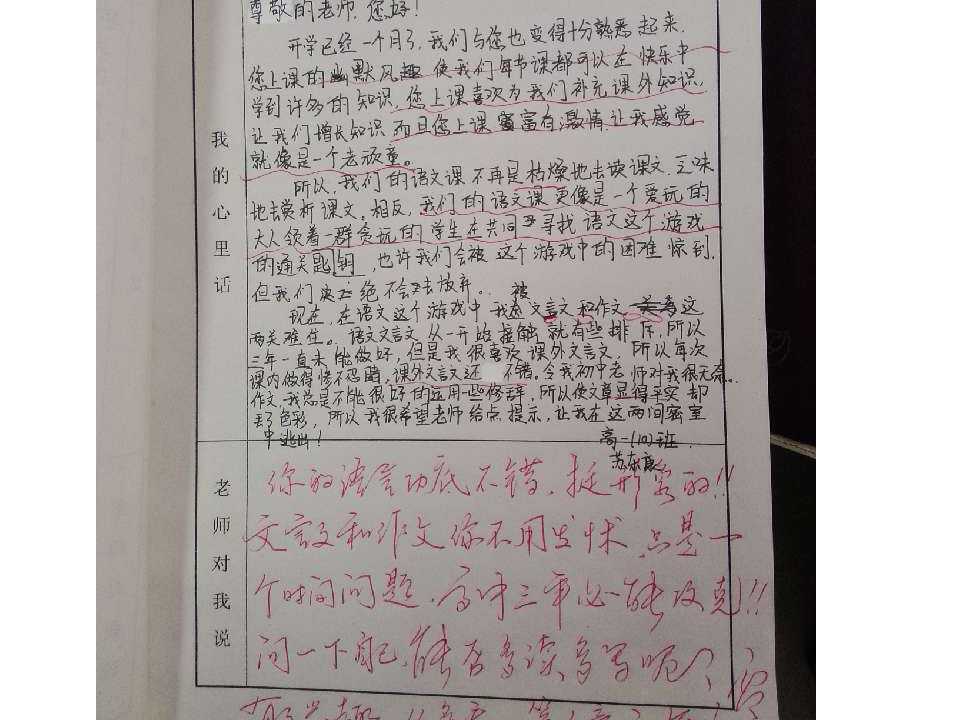 尊敬的老师,您好!
开学已经一个月了,我们与您也变得十分熟悉起来.
您上课的幽默风趣 使我们每节课都可以在快乐中
学到许多的知识,您上课喜欢为我们补充课外知识,
让我们增长知识 而且您上课富有激情,让我感觉
就像是一个老顽童。
所以,我们的语文课不再是枯燥地去读课文,乏味
地去赏析课文。相反,我们的语文课更像是一个爱玩的
大人领着一群贪玩的学生在共同寻找语文这个游戏
的通关匙钥,也许我们会被这个游戏中的困难惊到,
但我们决绝不会去放弃。
现在,在语文这个游戏中 我被文言文和作文这
两关难住。语文文言文,从一开始接触就有些排斥,所以
三年一直未能做好,但是我很喜欢课外文言文,所以每次
课内做得惨不忍睹,课外文言文还不错,令我初中老师对我很无奈。
作文,我总是不能很好的运用一些修辞,所以使文章显得平实却
丢了色彩,所以我很希望老师给点提示,让我在这两间密室
中逃出!
高一(10)班
我的心里话
你的语言功底不错,挺形象的!!
文言文和作文你不用发怵,只是一
个时间问题,高中三年必能攻克!!
问一下自己,能否多读多写呢?
老师对我说